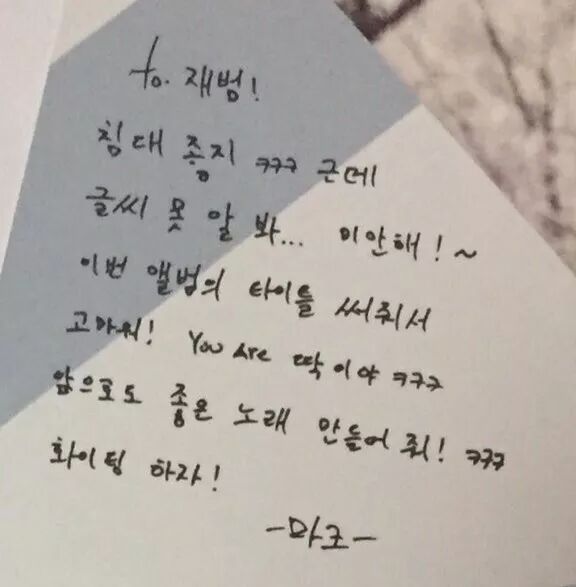 to. 재범!
침대 좋지 ㅋㅋㅋ 근데
글씨 못 알 봐... 미안해!~
이번 앨범의 타이틀 써줘서
고마워! You Are 딱이야 ㅋㅋㅋ
앞으로도 좋은 노래 만들어 줘! ㅋㅋㅋ
화이팅 하자!
-마크-